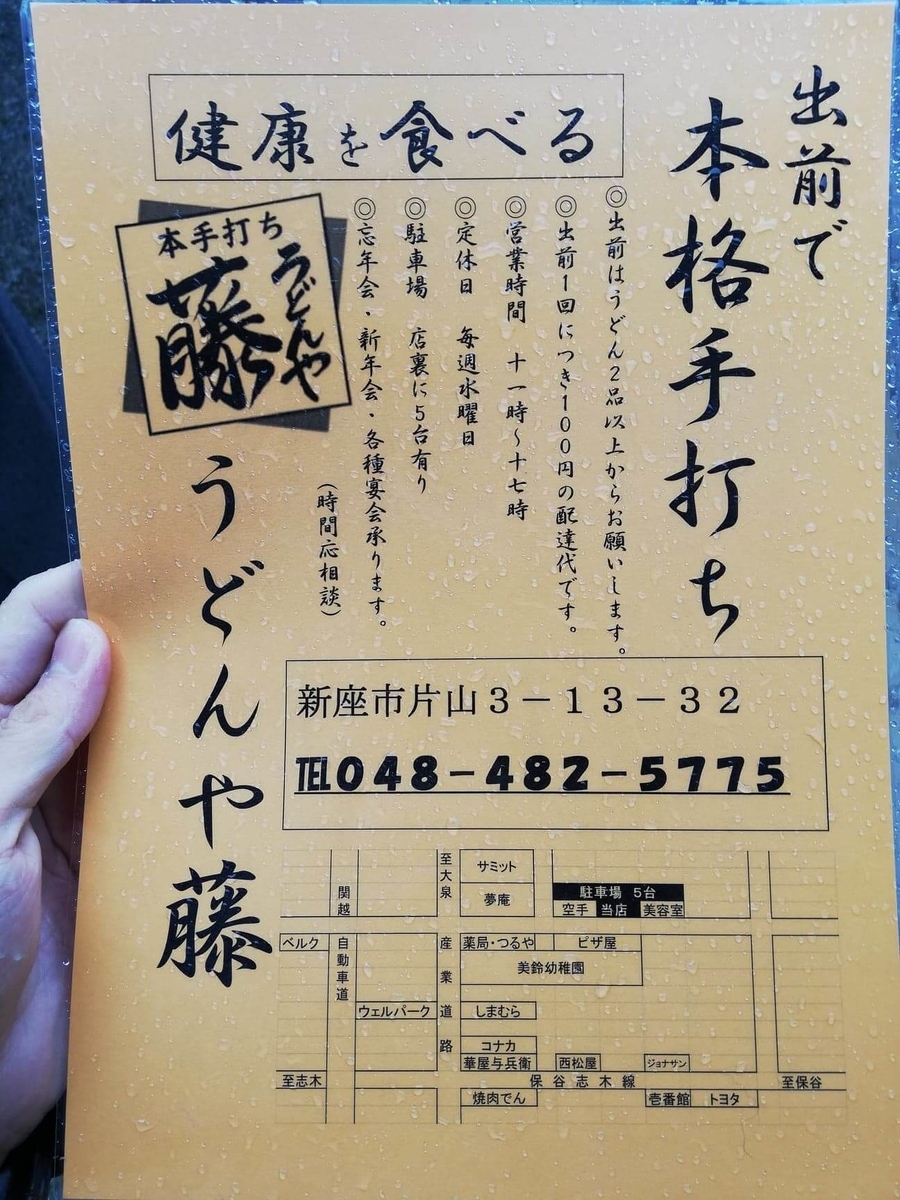 出前で
本格手打ち
健康を食べる
◎出前はうどん2品以上からお願いします。
◎出前1回につき100円の配達代です。
◎営業時間 十一時～十七時
◎定休日 毎週水曜日
◎駐車場 店裏に5台有り
◎忘年会・新年会・各種宴会承ります。
（時間応相談）
本手打ち
うどんや
藤
うどんや藤
新座市片山3－13－32
TEL048－482－5775
至大泉
サミット
夢庵
駐車場 5台
空手
当店
美容室
関越
自動車道
ベルク
産業道路
薬局・つるや
ピザ屋
美鈴幼稚園
ウェルパーク
しまむら
コナカ
華屋与兵衛
西松屋
ジョナサン
至志木
保谷志木線
至保谷
焼肉でん
壱番館
トヨタ